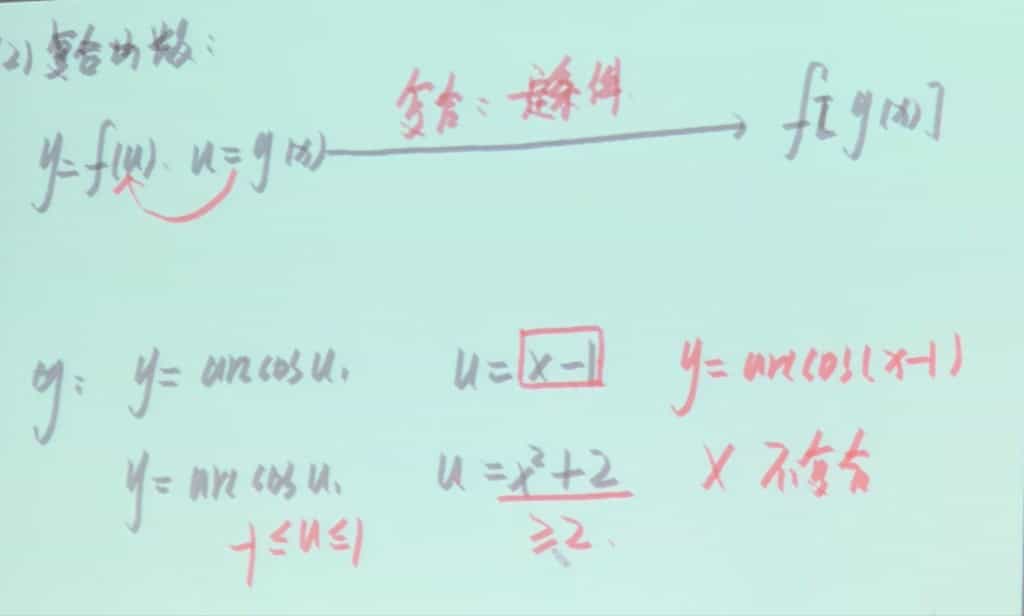 (2) 复合函数:
y=f(u). u=g(x) 复合: 一定条件 f[g(x)]
eg: y= arccosu. u= x-1 y= arccos(x-1)
y= arccosu. u=x²+2 X 不复合
-1≤u≤1 ≥2.